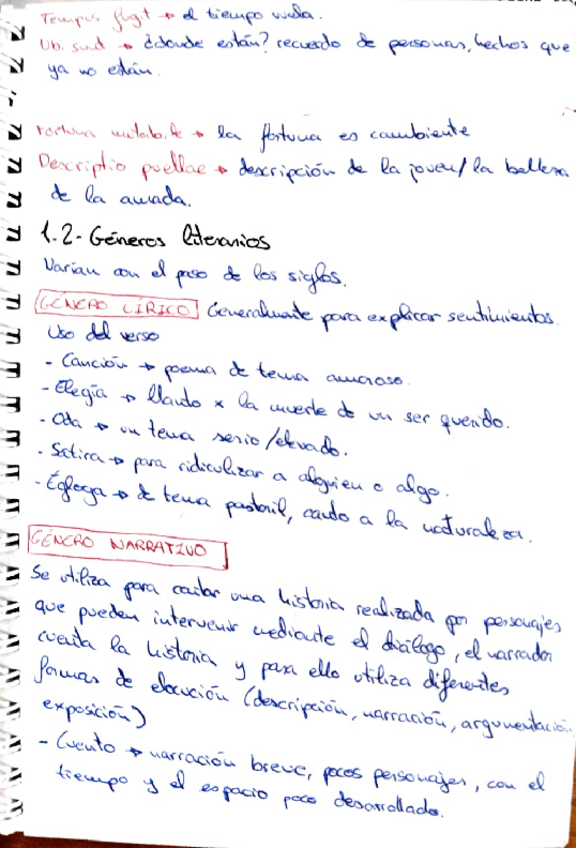 Tempus fugit → el tiempo vuela.
Ubi sunt → ¿dónde están? recuerdo de personas, hechos que
ya no están.
Fortuna mutabile → la fortuna es cambiante
Descriptio puellae → descripción de la joven/la belleza
de la amada.
1.2- Géneros literarios
Varían con el paso de los siglos.
GÉNERO LÍRICO Generalmente para explicar sentimientos.
Uso del verso
- Canción → poema de tema amoroso.
- Elegía → llanto x la muerte de un ser querido.
- Oda → un tema serio/elevado.
- Sátira → para ridiculizar a alguien o algo.
- Égloga → de tema pastoril, canto a la naturaleza.
GÉNERO NARRATIVO
Se utiliza para contar una historia realizada por personajes
que pueden intervenir mediante el diálogo, el narrador
cuenta la historia y para ello utiliza diferentes
formas de elocución (descripción, narración, argumentación,
exposición)
- Cuento → narración breve, pocos personajes, con el
tiempo y el espacio poco desarrollado.